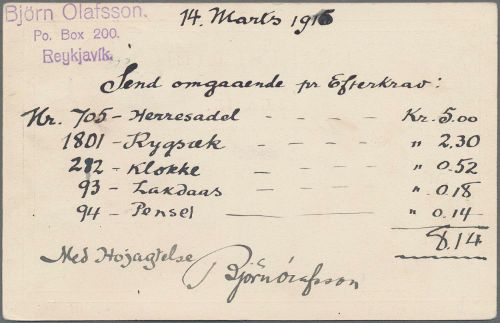 Björn Olafsson.
Po. Box 200.
Reykjavik.
14. Marts 1916
Send omgaaende pr Efterkrav:
Nr. 705 - Herresadel - - - Kr. 5.00
1801 - Rygsæk - - - " 2.30
282 - Klokke - - - " 0.52
93 - Lakdaas - - - " 0.18
94 - Pensel " 0.14
8.14
Med Højagtelse
Björn Ólafsson